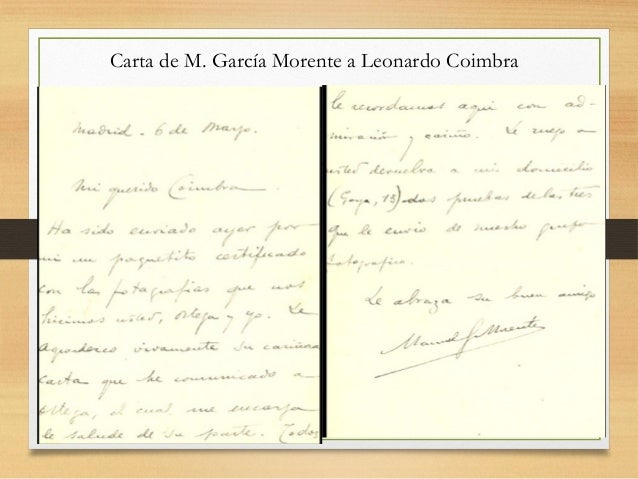 Carta de M. García Morente a Leonardo Coimbra
Madrid - 6 de Marzo.
Mi querido Coimbra
Ha sido enviado ayer por
mi un paquetito certificado
con las fotografias que nos
hicimos usted, Ortega y yo. Le
agradezco vivamente su cariñosa
carta que he comunicado a
Ortega, el cual me encarga
le salude de su parte. Todos
le recordamos aqui con ad-
miración y cariño. Le ruego a
usted devuelva a mi domicilio
(Goya, 13) dos pruebas de las tres
que le envio de nuestro grupo
fotografico.
Le abraza su buen amigo
Manuel G. Morente